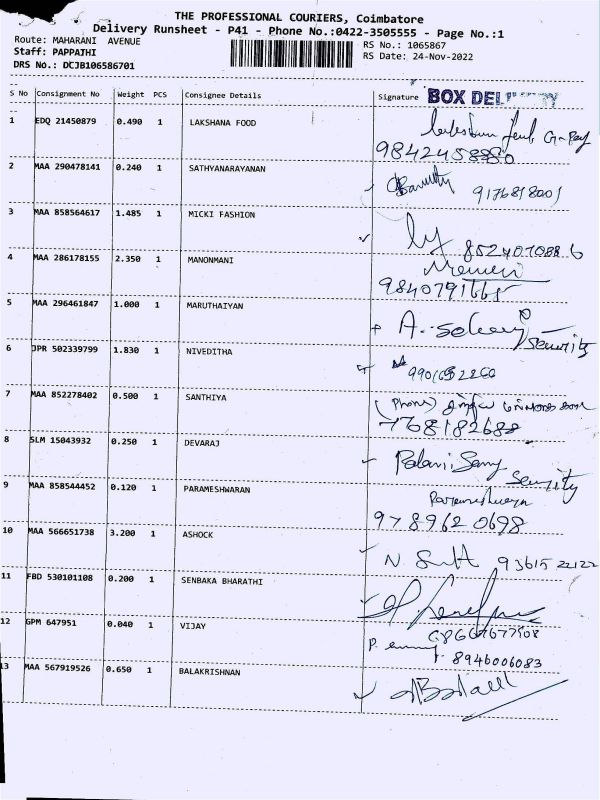 THE PROFESSIONAL COURIERS, Coimbatore
Delivery Runsheet - P41 - Phone No.:0422-3505555 - Page No.:1
Route: MAHARANI AVENUE RS No.: 1065867
Staff: PAPPATHI RS Date: 24-Nov-2022
DRS No.: DCJB106586701
S No Consignment No Weight PCS Consignee Details Signature BOX DELIVERY
1 EDQ 21450879 0.490 1 LAKSHANA FOOD G-Pay
2 MAA 290478141 0.240 1 SATHYANARAYANAN
3 MAA 858564617 1.485 1 MICKI FASHION
4 MAA 286178155 2.350 1 MANONMANI
9840791665
5 MAA 296461847 1.000 1 MARUTHAIYAN
Security
6 JPR 502339799 1.830 1 NIVEDITHA
7 MAA 852278402 0.500 1 SANTHIYA (Phone)
7768182688
8 SLM 15043932 0.250 1 DEVARAJ Palani Samy
Security
9 MAA 858544452 0.120 1 PARAMESHWARAN
9789620698
10 MAA 566651738 3.200 1 ASHOCK 9361522122
11 FBD 530101108 0.200 1 SENBAKA BHARATHI
12 GPM 647951 0.040 1 VIJAY
8946006083
13 MAA 567919526 0.650 1 BALAKRISHNAN